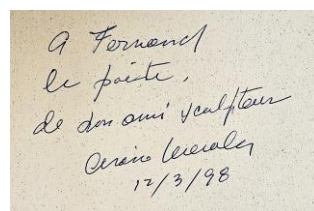 A Fernand
le poète,
de son ami sculpteur
12/3/98